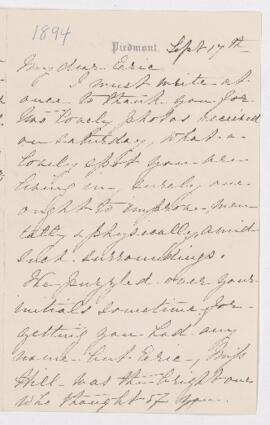 1894
Piedmont. Sept 17th
My dear Eric
I must write at
once to thank you for
two lovely photos received
on Saturday, what a
lovely spot you are
living in, surely one
ought to improve men-
tally & physically amid
such surroundings.
We puzzled over your
initials sometime for-
getting you had any
name but Eric, Miss
Hill was the bright one
who thought of you